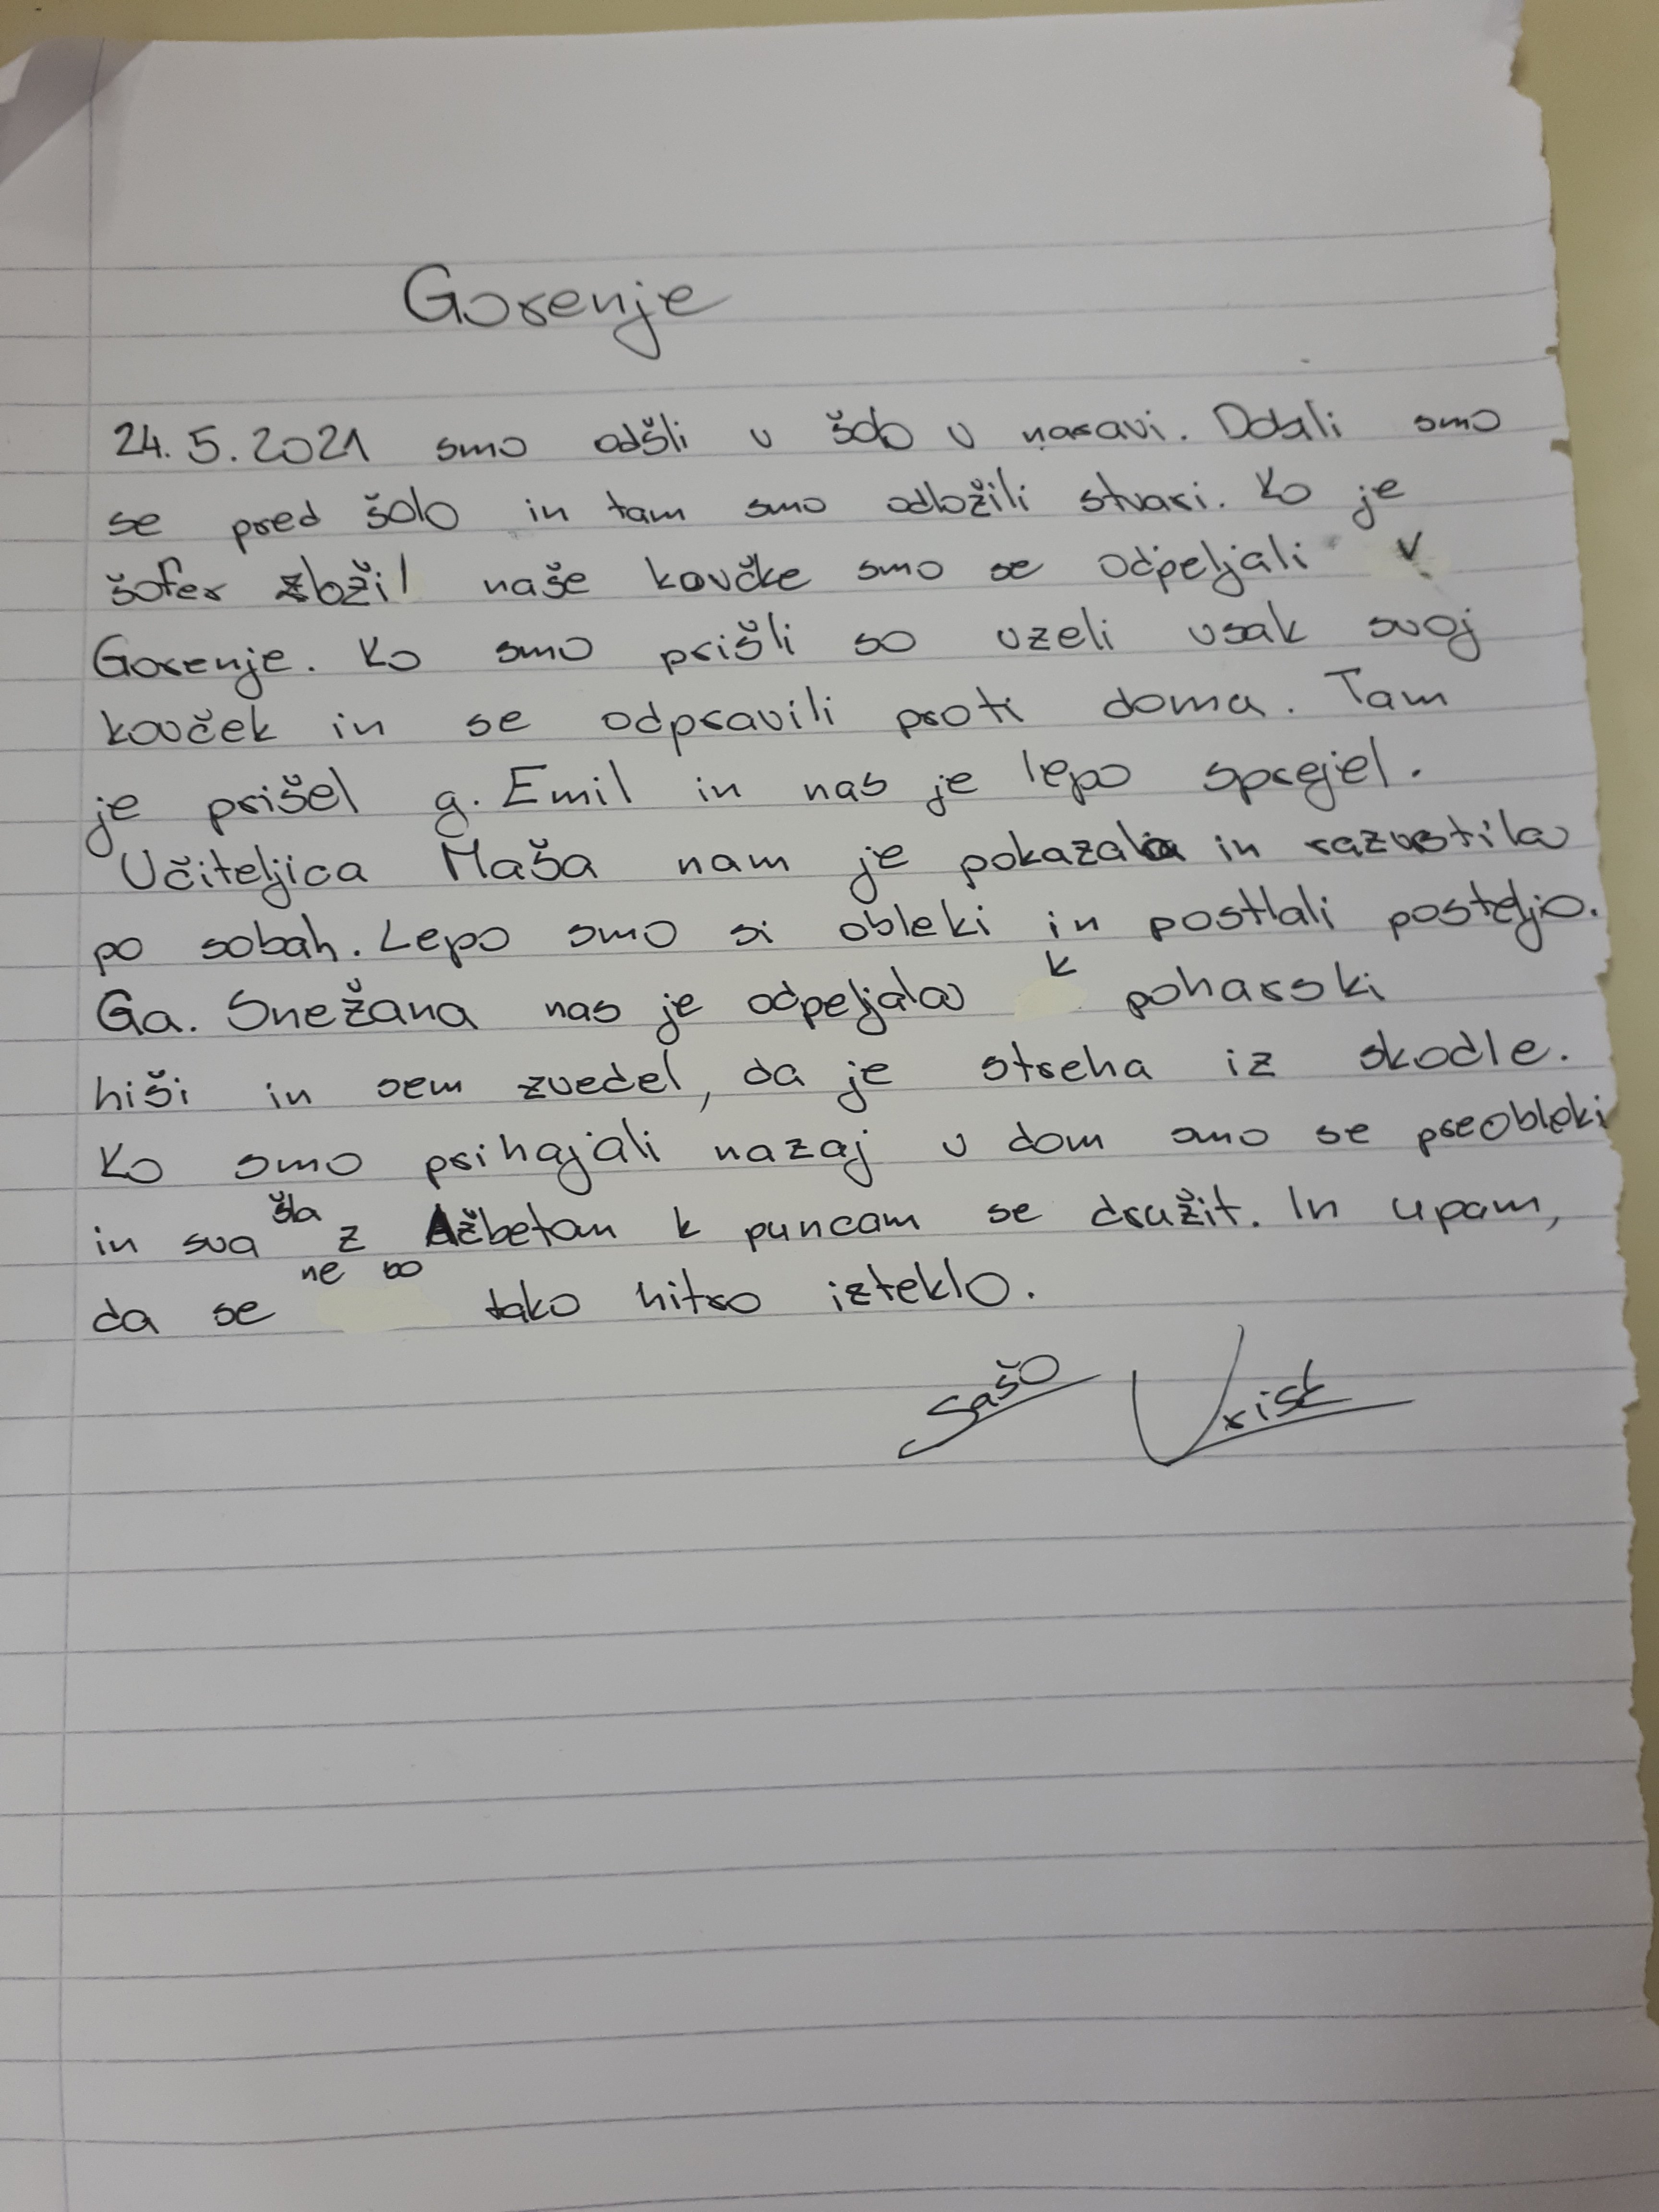 Gorenje
24. 5. 2021 smo odšli v šolo v naravi. Dobili smo
se pred šolo in tam smo odložili stvari. Ko je
šofer zložil naše kovčke smo se odpeljali v
Gorenje. Ko smo prišli so vzeli vsak svoj
kovček in se odpravili proti doma. Tam
je prišel g. Emil in nas je lepo sprejel.
Učiteljica Maša nam je pokazala in razvrstila
po sobah. Lepo smo si obleki in postlali posteljo.
Ga. Snežana nas je odpeljala k poharski
hiši in sem zvedel, da je streha iz skodle.
Ko smo prihajali nazaj v dom smo se preobleki
in sva šla z Ažbetom k puncam se družit. In upam,
da se ne bo tako hitro izteklo.
Sašo Vrisk